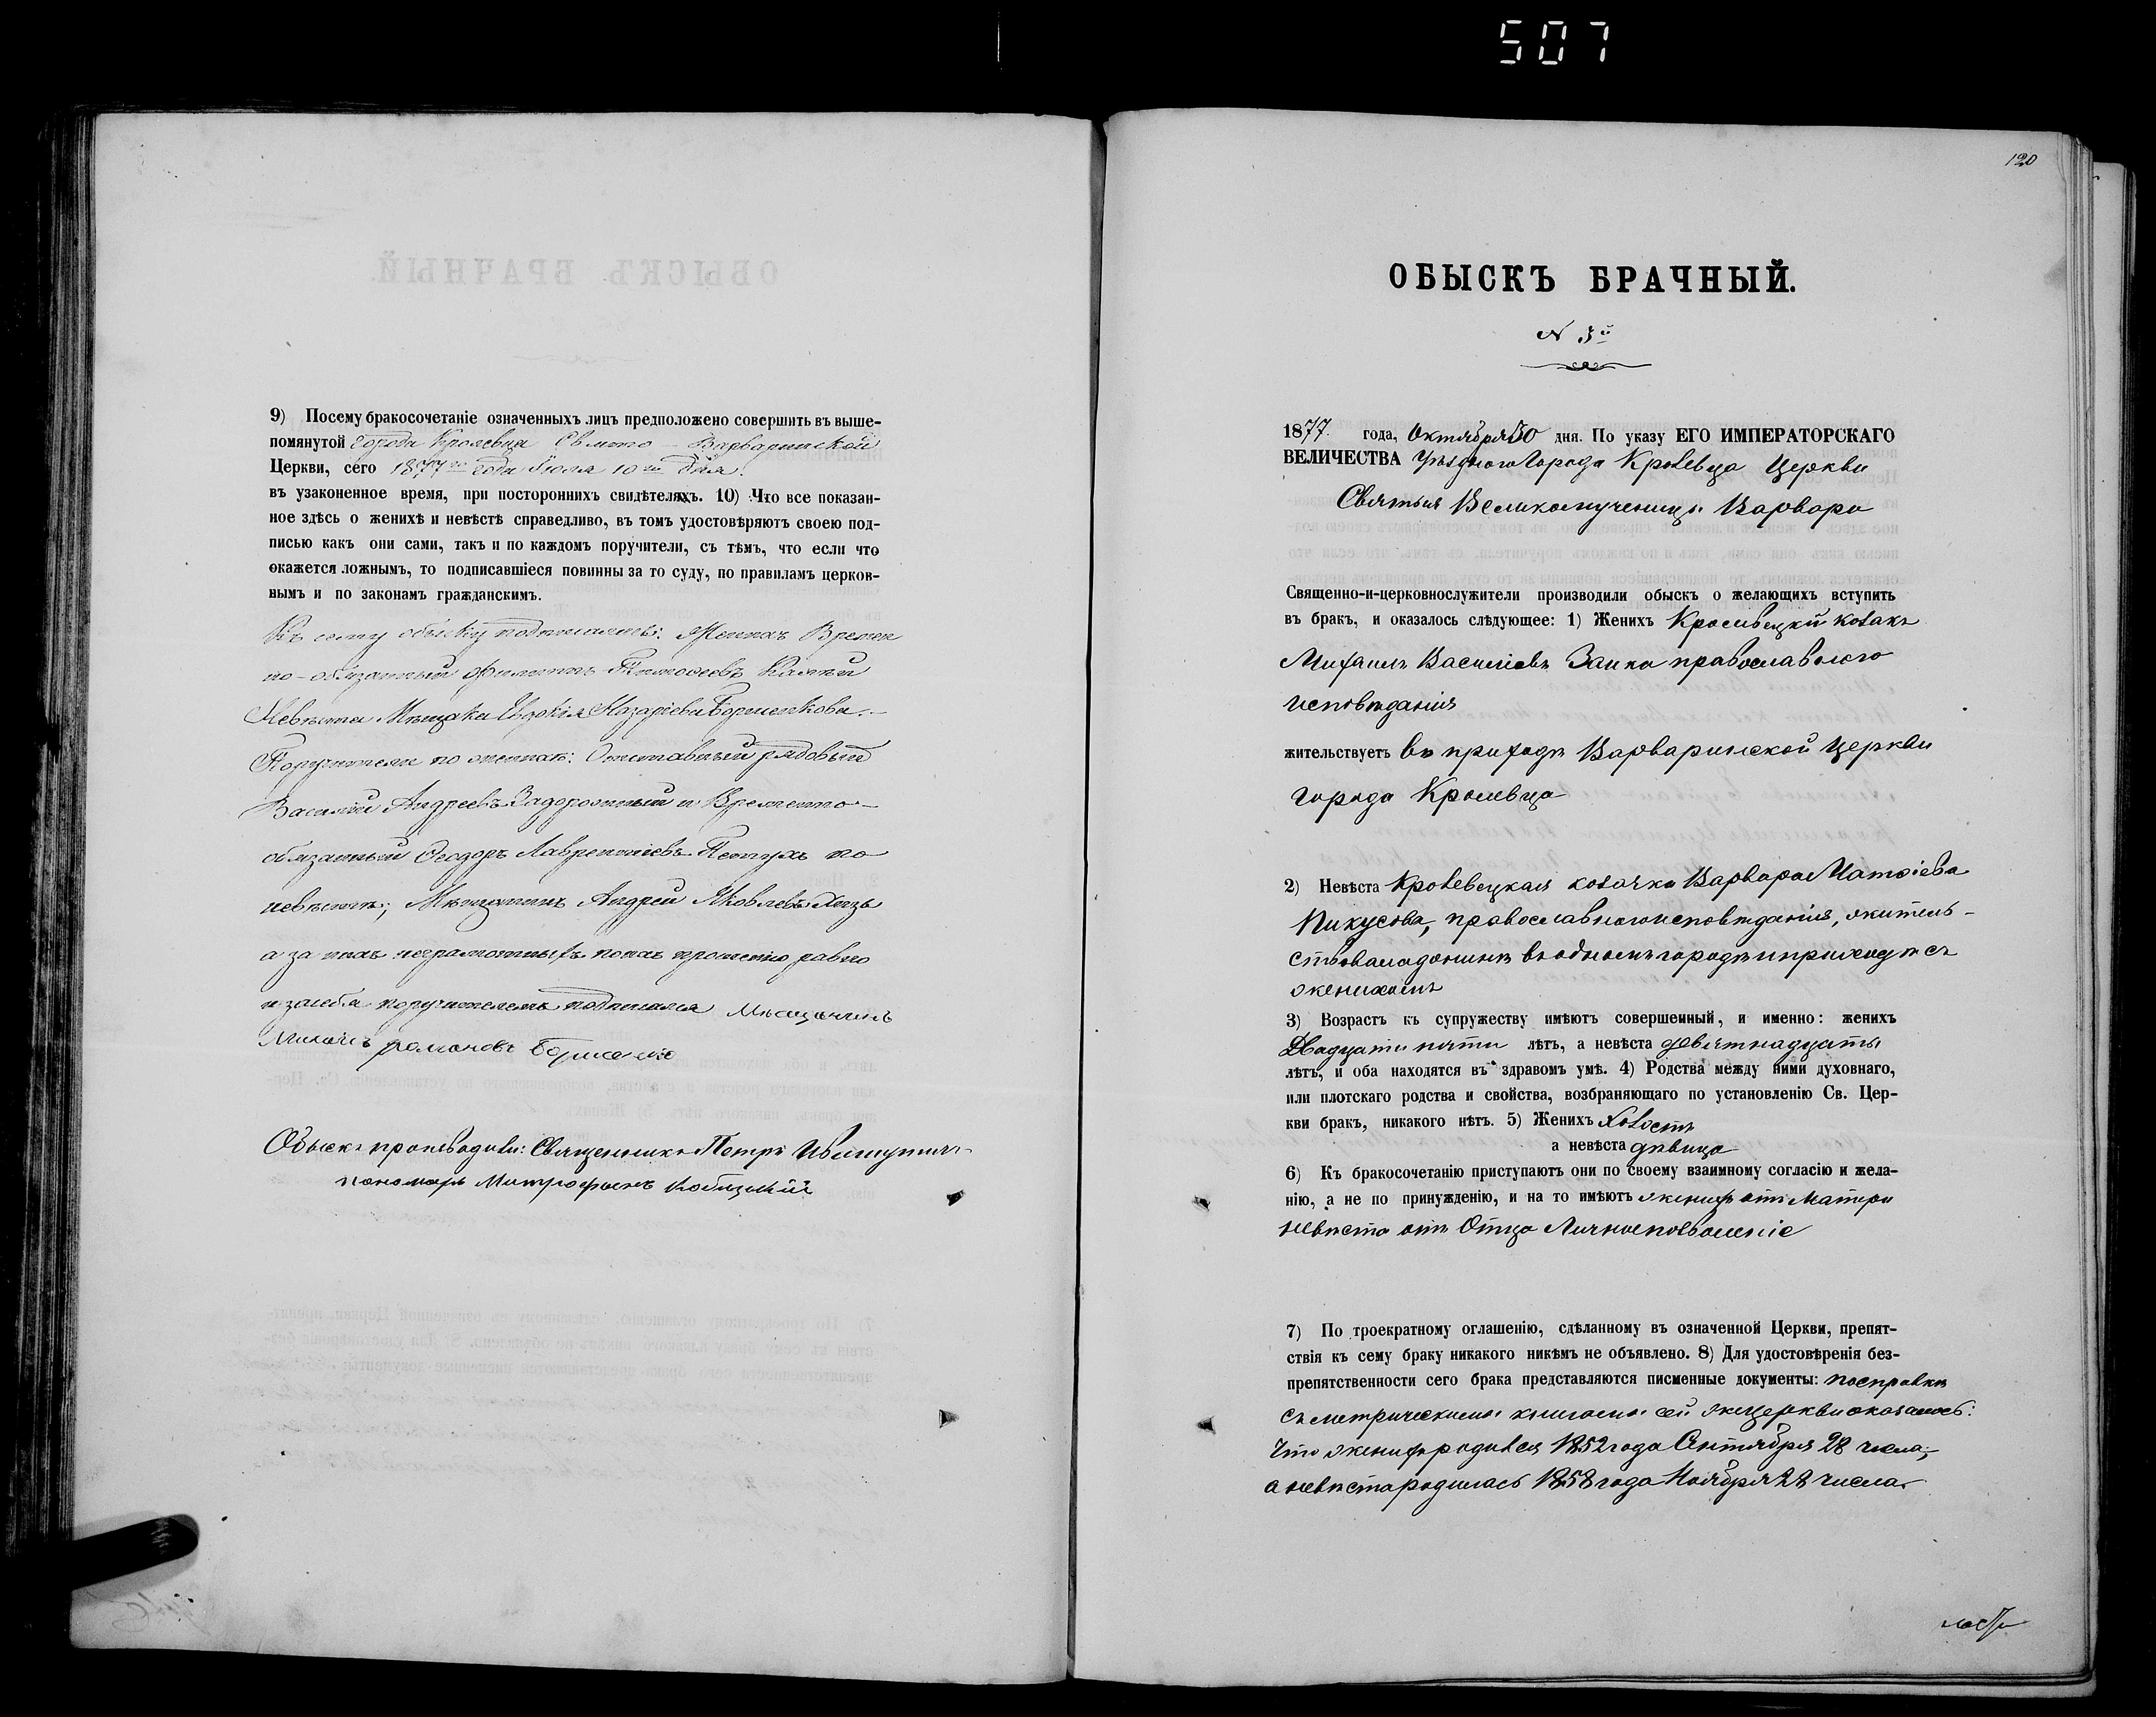 507
9) Посему бракосочетаніе означенныхъ лицъ предположено совершить въ выше-
помянутой города Кролевца Свято-Варваринской
Церкви, сего 1877го года Іюля 10го дня.
въ узаконенное время, при постороннихъ свидѣтеляхъ. 10) Что все показан-
ное здѣсь о женихѣ и невѣстѣ справедливо, въ томъ удостовѣряютъ своею под-
писью какъ они сами, такъ и по каждомъ поручители, съ тѣмъ, что если что
окажется ложнымъ, то подписавшіеся повинны за то суду, по правиламъ церков-
нымъ и по законамъ гражданскимъ.
Къ сему обыску подписались: Женихъ Времен
но-обязанный Филиппъ Тимофеевъ
Невѣста Мѣщанка Евдокія Назаріева Борисенкова.
Поручители по женихѣ: Отставный рядовый
Василій Андреевъ Задорожный и Временно-
обязанный Ѳеодоръ Лаврентіевъ Петухъ по
невѣстѣ; Мѣщанинъ Андрей Яковлевъ
а за нихъ неграмотныхъ по ихъ прошенію равно
и за себя поручителемъ подписался Мѣщанинъ
романовъ Борисенко
Обыскъ производили: Священникъ Петръ
пономарь Митрофанъ
120
ОБЫСКЪ БРАЧНЫЙ.
N 3й
1877 года, Октября 30 дня. По указу ЕГО ИМПЕРАТОРСКАГО
ВЕЛИЧЕСТВА Уѣзднаго Города Кролевца Церкви
Святыя Великомученицы Варвары
Священно-и-церковнослужители производили обыскъ о желающихъ вступить
въ бракъ, и оказалось слѣдующее: 1) Женихъ Кролевецкій козакъ
Михаилъ Василіевъ Заика православнаго
исповѣданія
жительствуетъ въ приходѣ Варваринской Церкви
города Кролевца
2) Невѣста Кролевецкая козачка Варвара Матѳіева
Пикусова, православнаго исповѣданія, житель-
ствовала донынѣ въ одномъ городѣ и приходѣ съ
женихомъ
3) Возрастъ къ супружеству имѣютъ совершенный, и именно: женихъ
Двадцати пяти лѣтъ, а невѣста девятнадцати
лѣтъ, и оба находятся въ здравомъ умѣ. 4) Родства между ними духовнаго,
или плотскаго родства и свойства, возбраняющаго по установленію Св. Цер-
кви бракъ, никакого нѣтъ. 5) Женихъ холостъ
а невѣста дѣвица
6) Къ бракосочетанію приступаютъ они по своему взаимному согласію и жела-
нію, а не по принужденію, и на то имѣютъ женихъ отъ Матери
невѣста отъ Отца Личное позволеніе
7) По троекратному оглашенію, сдѣланному въ означенной Церкви, препят-
ствія къ сему браку никакого никѣмъ не объявлено. 8) Для удостовѣренія без-
препятственности сего брака представляются писменные документы: по справкѣ
съ метрическими книгами сей же церкви оказалось:
что женихъ родился 1852 года Сентября 28 числа,
а невѣста родилась 1858 года Ноября 28 числа